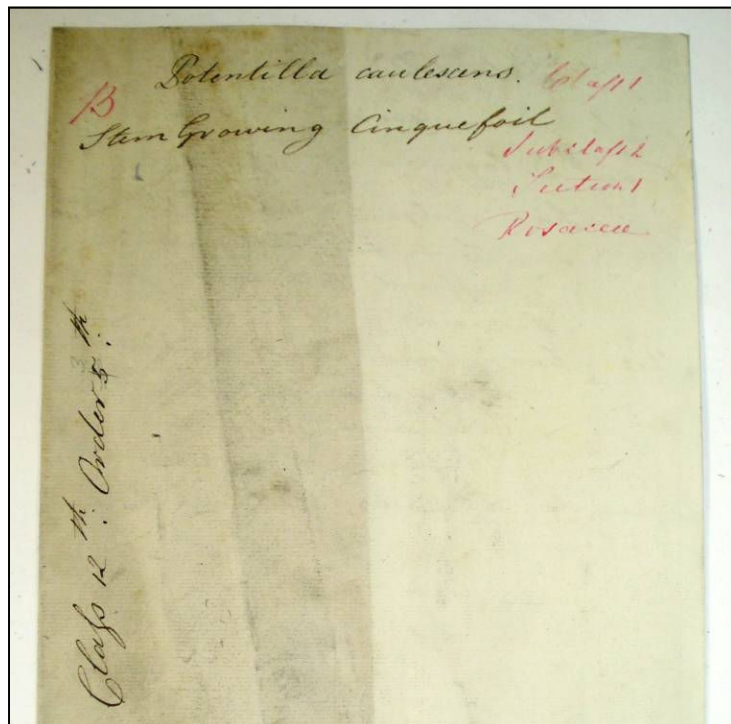 Potentilla caulescens.
B
Class 1
Stem Growing Cinquefoil
Subclass 2
Section 1
Rosaceae
Class 12th. Order 5th.